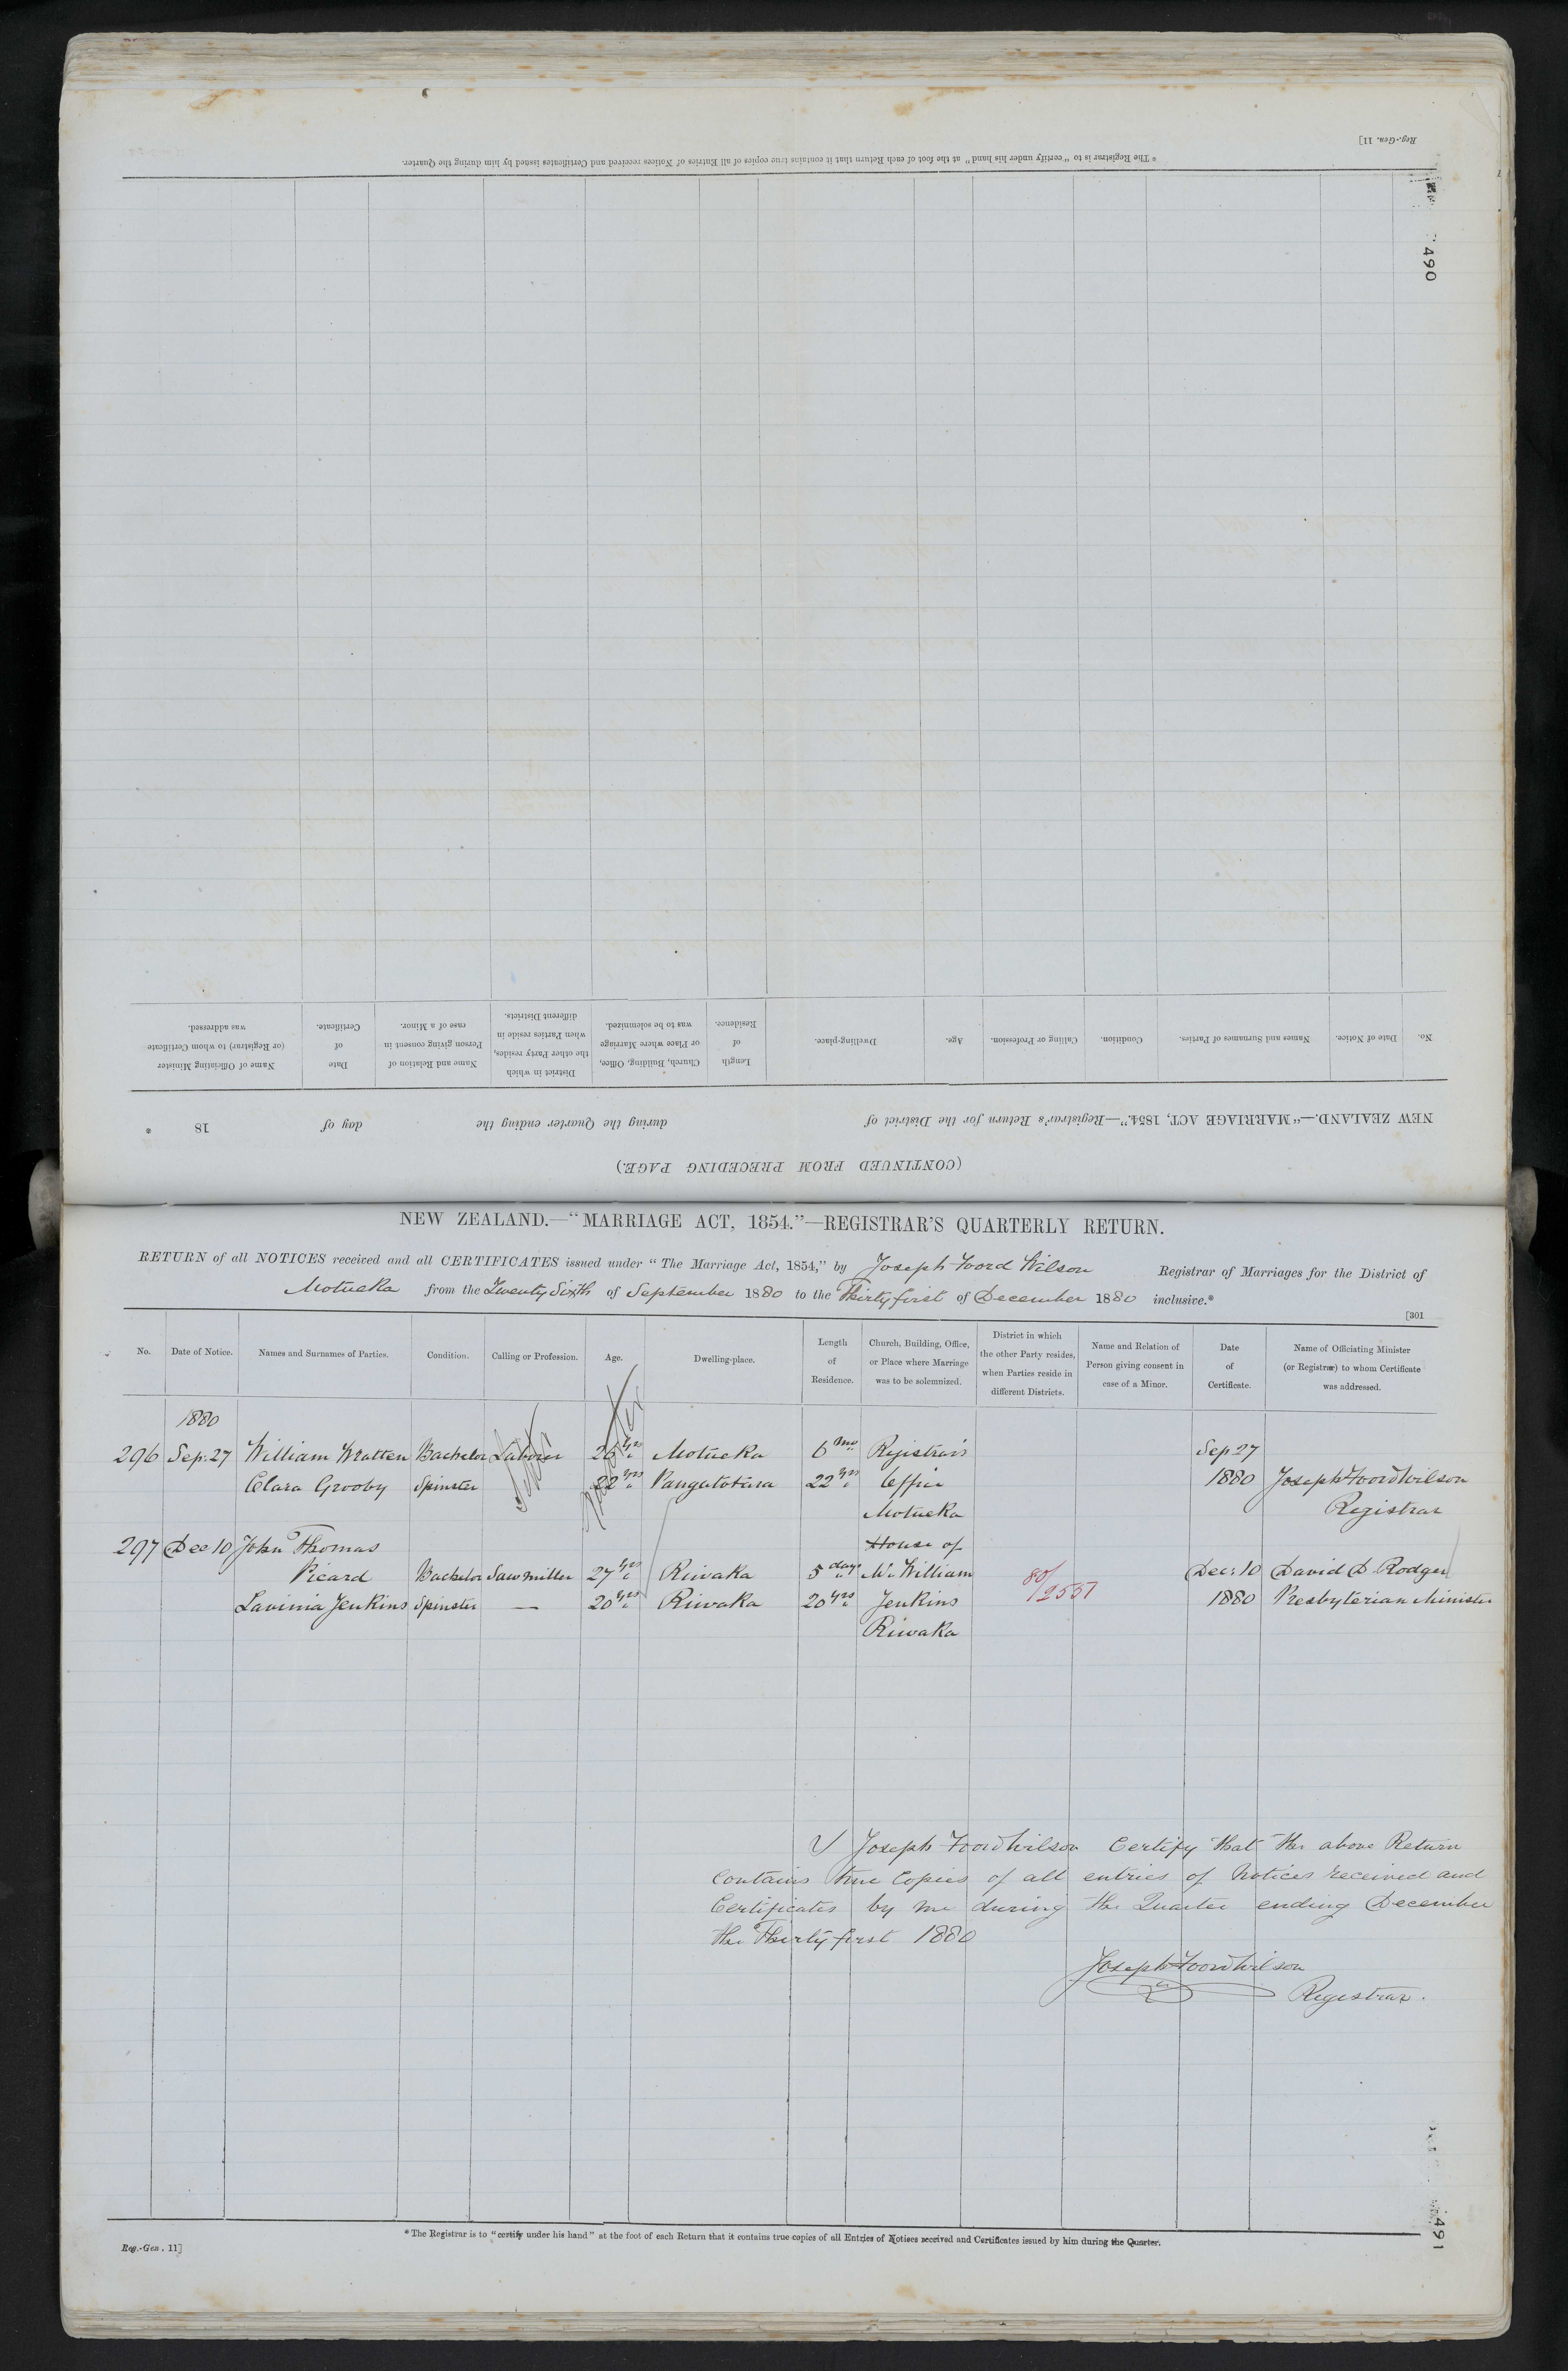 Reg.-Gen. 11]
* The Registrar is to "certify under his hand" at the foot of each Return that it contains true copies of all Entries of Notices received and Certificates issued by him during the Quarter.
490
(CONTINUED FROM PRECEDING PAGE.)
NEW ZEALAND.—"MARRIAGE ACT, 1854."—Registrar's Return for the District of during the Quarter ending the day of 18 *
No. Date of Notice. Names and Surnames of Parties. Condition. Calling or Profession. Age. Dwelling-place. Length of Residence. Church, Building, Office, or Place where Marriage was to be solemnized. District in which the other Party resides, when Parties reside in different Districts. Name and Relation of Person giving consent in case of a Minor. Date of Certificate. Name of Officiating Minister (or Registrar) to whom Certificate was addressed.
NEW ZEALAND.—"MARRIAGE ACT, 1854."—REGISTRAR'S QUARTERLY RETURN.
RETURN of all NOTICES received and all CERTIFICATES issued under "The Marriage Act, 1854," by Joseph Foord Wilson Registrar of Marriages for the District of
Motueka from the Twenty Sixth of September 1880 to the Thirty first of December 1880 inclusive.*
[301
No. Date of Notice. Names and Surnames of Parties. Condition. Calling or Profession. Age. Dwelling-place. Length of Residence. Church, Building, Office, or Place where Marriage was to be solemnized. District in which the other Party resides, when Parties reside in different Districts. Name and Relation of Person giving consent in case of a Minor. Date of Certificate. Name of Officiating Minister (or Registrar) to whom Certificate was addressed.
1880
296 Sep: 27 William Wratten Bachelor Laborer 26 yrs Motueka 6 mo Registrar's Sep 27
Clara Grooby Spinster 22 yrs Pangatotara 22 yrs Office 1880 Joseph Foord Wilson
Motueka Registrar
297 Dec 10 John Thomas House of
Picard Bachelor Saw miller 27 yrs Riwaka 5 days Mr William 80/2557 Dec: 10 David D. Rodger
Lavinia Jenkins Spinster — 20 yrs Riwaka 20 yrs Jenkins 1880 Presbyterian Minister
Riwaka
I Joseph Foord Wilson Certify that the above Return
contains true Copies of all entries of Notices received and
Certificates by me during the Quarter ending December
the Thirty first 1880
Joseph Foord Wilson
Registrar.
* The Registrar is to "certify under his hand" at the foot of each Return that it contains true copies of all Entries of Notices received and Certificates issued by him during the Quarter.
Reg.-Gen. 11]
491